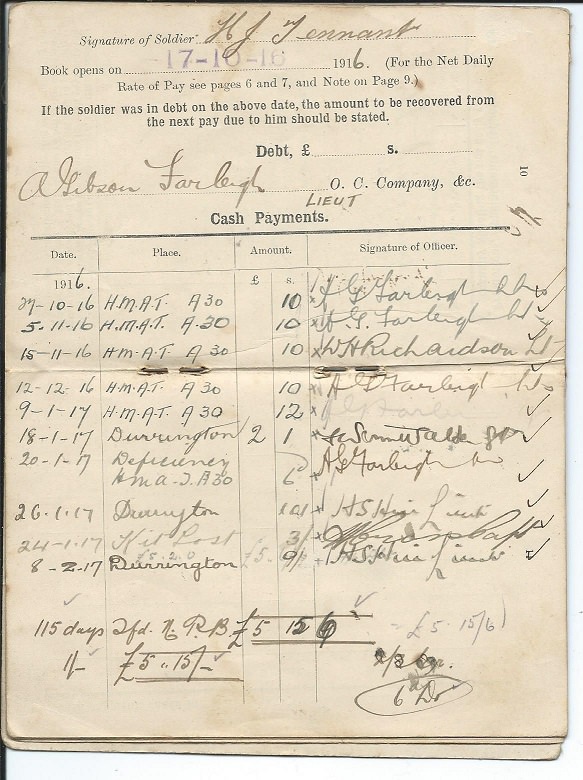 Signature of Soldier H J Tennant
Book opens on 17-10-16 1916. (For the Net Daily
Rate of Pay see pages 6 and 7, and Note on Page 9.)
If the soldier was in debt on the above date, the amount to be recovered from
the next pay due to him should be stated.
Debt, £ s.
A Gibson Farleigh O. C. Company, &c.
LIEUT
10
Cash Payments.
Date. Place. Amount. Signature of Officer.
1916. £ s.
27-10-16 H.M.A.T. A30 10 A G Farleigh
5-11-16 H.M.A.T. A30 10 A. G. Farleigh Lt
15-11-16 H.M.A.T. A30 10 W H Richardson Lt
12-12-16 H.M.A.T. A30 10 A G Farleigh
9-1-17 H.M.A.T. A30 12
18-1-17 Durrington 2 1
20-1-17 Deficiency A G Farleigh
H.M.A.T. A30 6
26-1-17 Durrington 10/
24-1-17 Kit Post 3/
£5.2.0
8-2-17 Durrington 9/
115 days Tfd. N. R B £5 15 6 = £5.15/6
1/- £5 „ 15/-
6d Dr